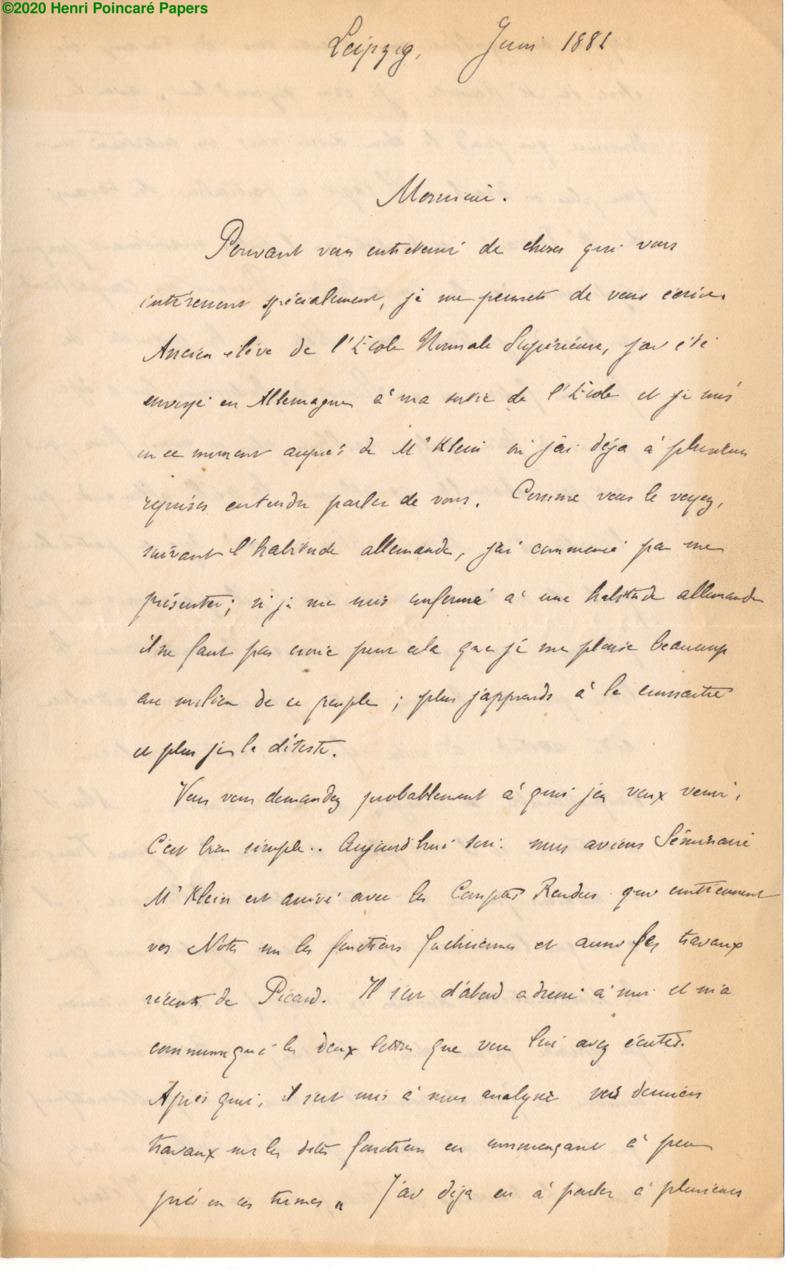 ©2020 Henri Poincaré Papers
Leipzig, Juin 1881
Monsieur.
Pouvant vous entretenir de choses qui vous
intéressent spécialement, je me permets de vous écrire.
Ancien élève de l'Ecole Normale Supérieure, j'ai été
envoyé en Allemagne à ma sortie de l'Ecole et je suis
en ce moment auprès de Mr Klein où j'ai déja à plusieurs
reprises entendu parler de vous. Comme vous le voyez,
suivant l'habitude allemande, j'ai commencé par me
présenter; si je me suis conformé à une habitude allemande
il ne faut pas croire pour cela que je me plaise beaucoup
au milieu de ce peuple; plus j'apprends à le connaître
et plus je le déteste.
Vous vous demandez probablement à quoi j'en veux venir,
C'est bien simple.. Aujourd'hui soir nous avions Séminaire
Mr Klein est arrivé avec les Comptes Rendus qui contiennent
vos Notes sur les fonctions fuchsiennes et aussi les travaux
récents de Picard. Il s'est d'abord adressé à moi et m'a
communiqué les deux lettres que vous lui avez écrites.
Après quoi, il s'est mis à nous analyser vos derniers
travaux sur les dites fonctions en commençant à peu
près en ces termes „ J'ai déja eu à parler à plusieurs